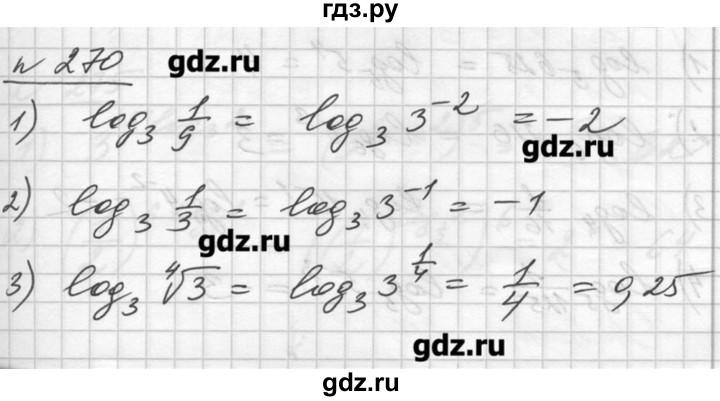 гдз.ру
№ 270
gdz.ru
1) log₃ 1/9 = log₃ 3⁻² = -2
gdz.ru
2) log₃ 1/3 = log₃ 3⁻¹ = -1
gdz.ru
3) log₃ ⁴√3 = log₃ 3^(1/4) = 1/4 = 0,25
gdz.ru
gdz.ru